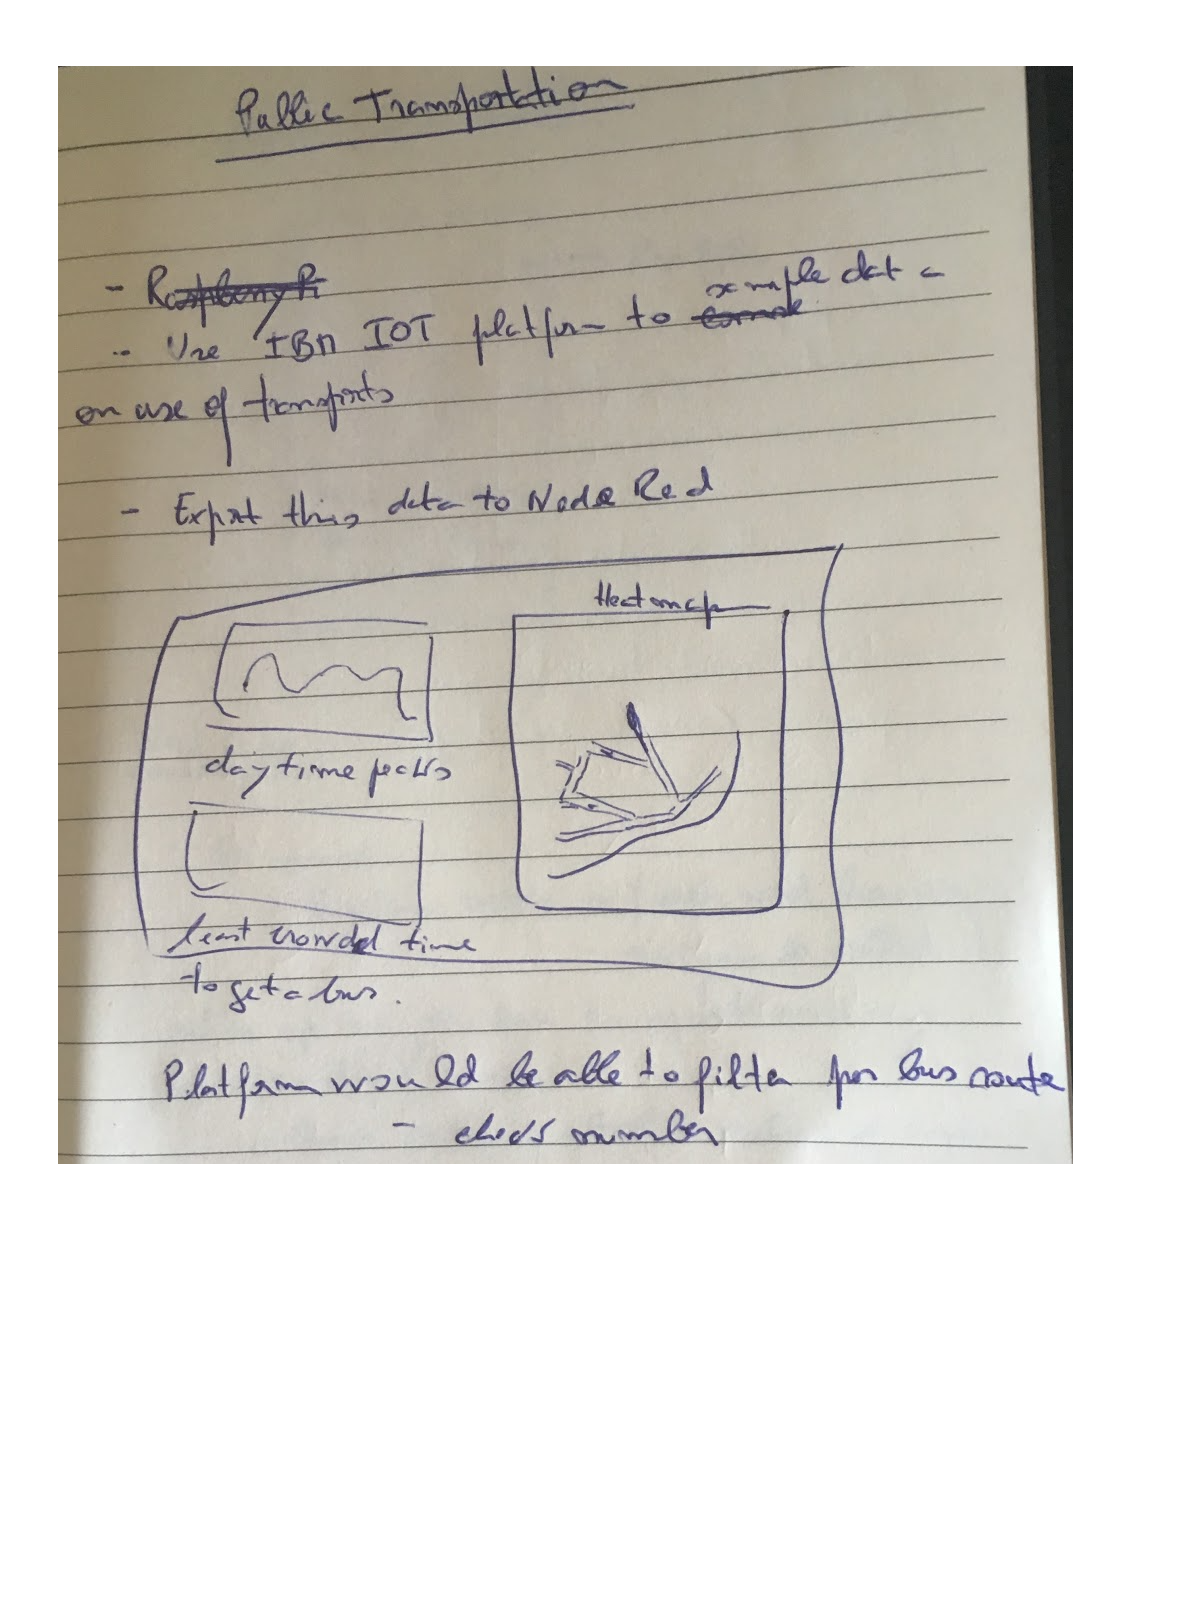 Public Transportation
- Raspberry Pi
- Use IBM IOT platform to sample data
on use of transports
- Export this data to Node Red
Heatmap
day time peaks
least crowded time
to get a bus.
Platform would be able to filter per bus route
- number